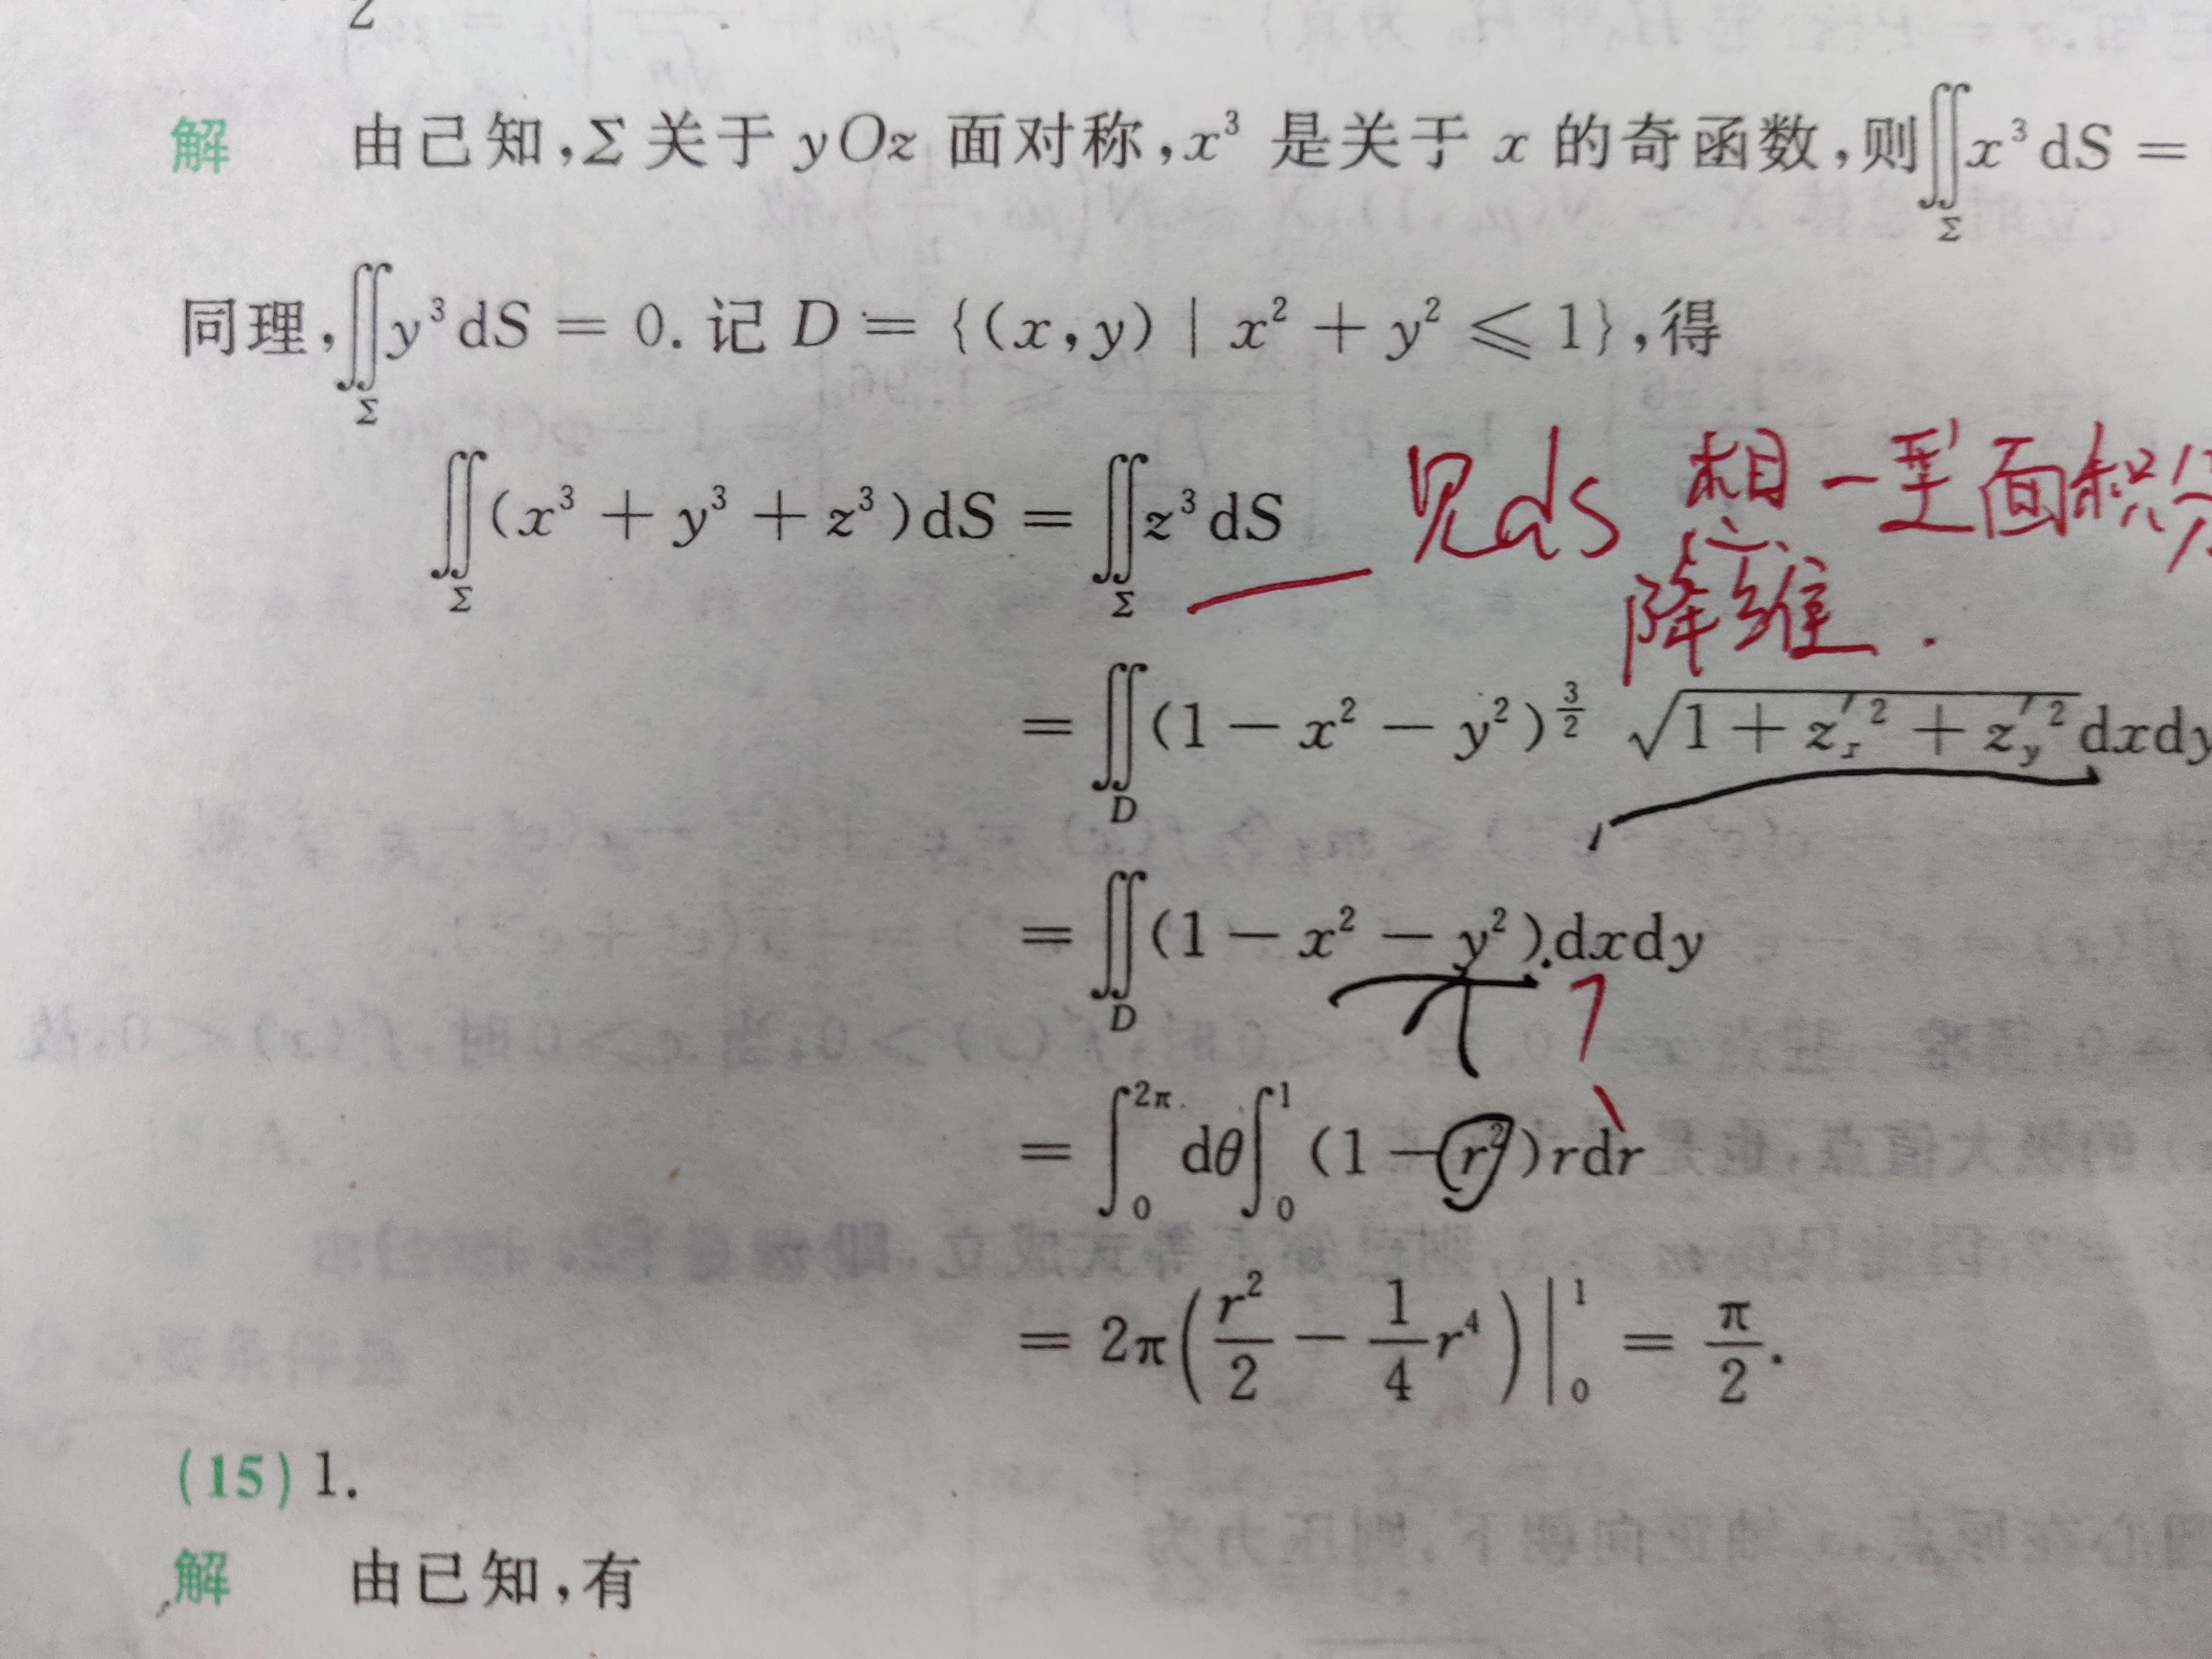 2
解 由己知,Σ关于 yOz 面对称,x³ 是关于 x 的奇函数,则∬_Σ x³dS =
同理,∬_Σ y³dS = 0. 记 D = {(x,y) | x² + y² ⩽ 1},得
∬_Σ (x³ + y³ + z³)dS = ∬_Σ z³dS 见ds 想一型面积分
降维.
= ∬_D (1 − x² − y²)^{3/2} √(1 + z′_x² + z′_y²) dxdy
= ∬_D (1 − x² − y²)dxdy
= ∫_0^{2π} dθ ∫_0^1 (1 − r²)rdr
= 2π(r²/2 − 1/4 r⁴)|_0^1 = π/2.
(15) 1.
解 由已知,有